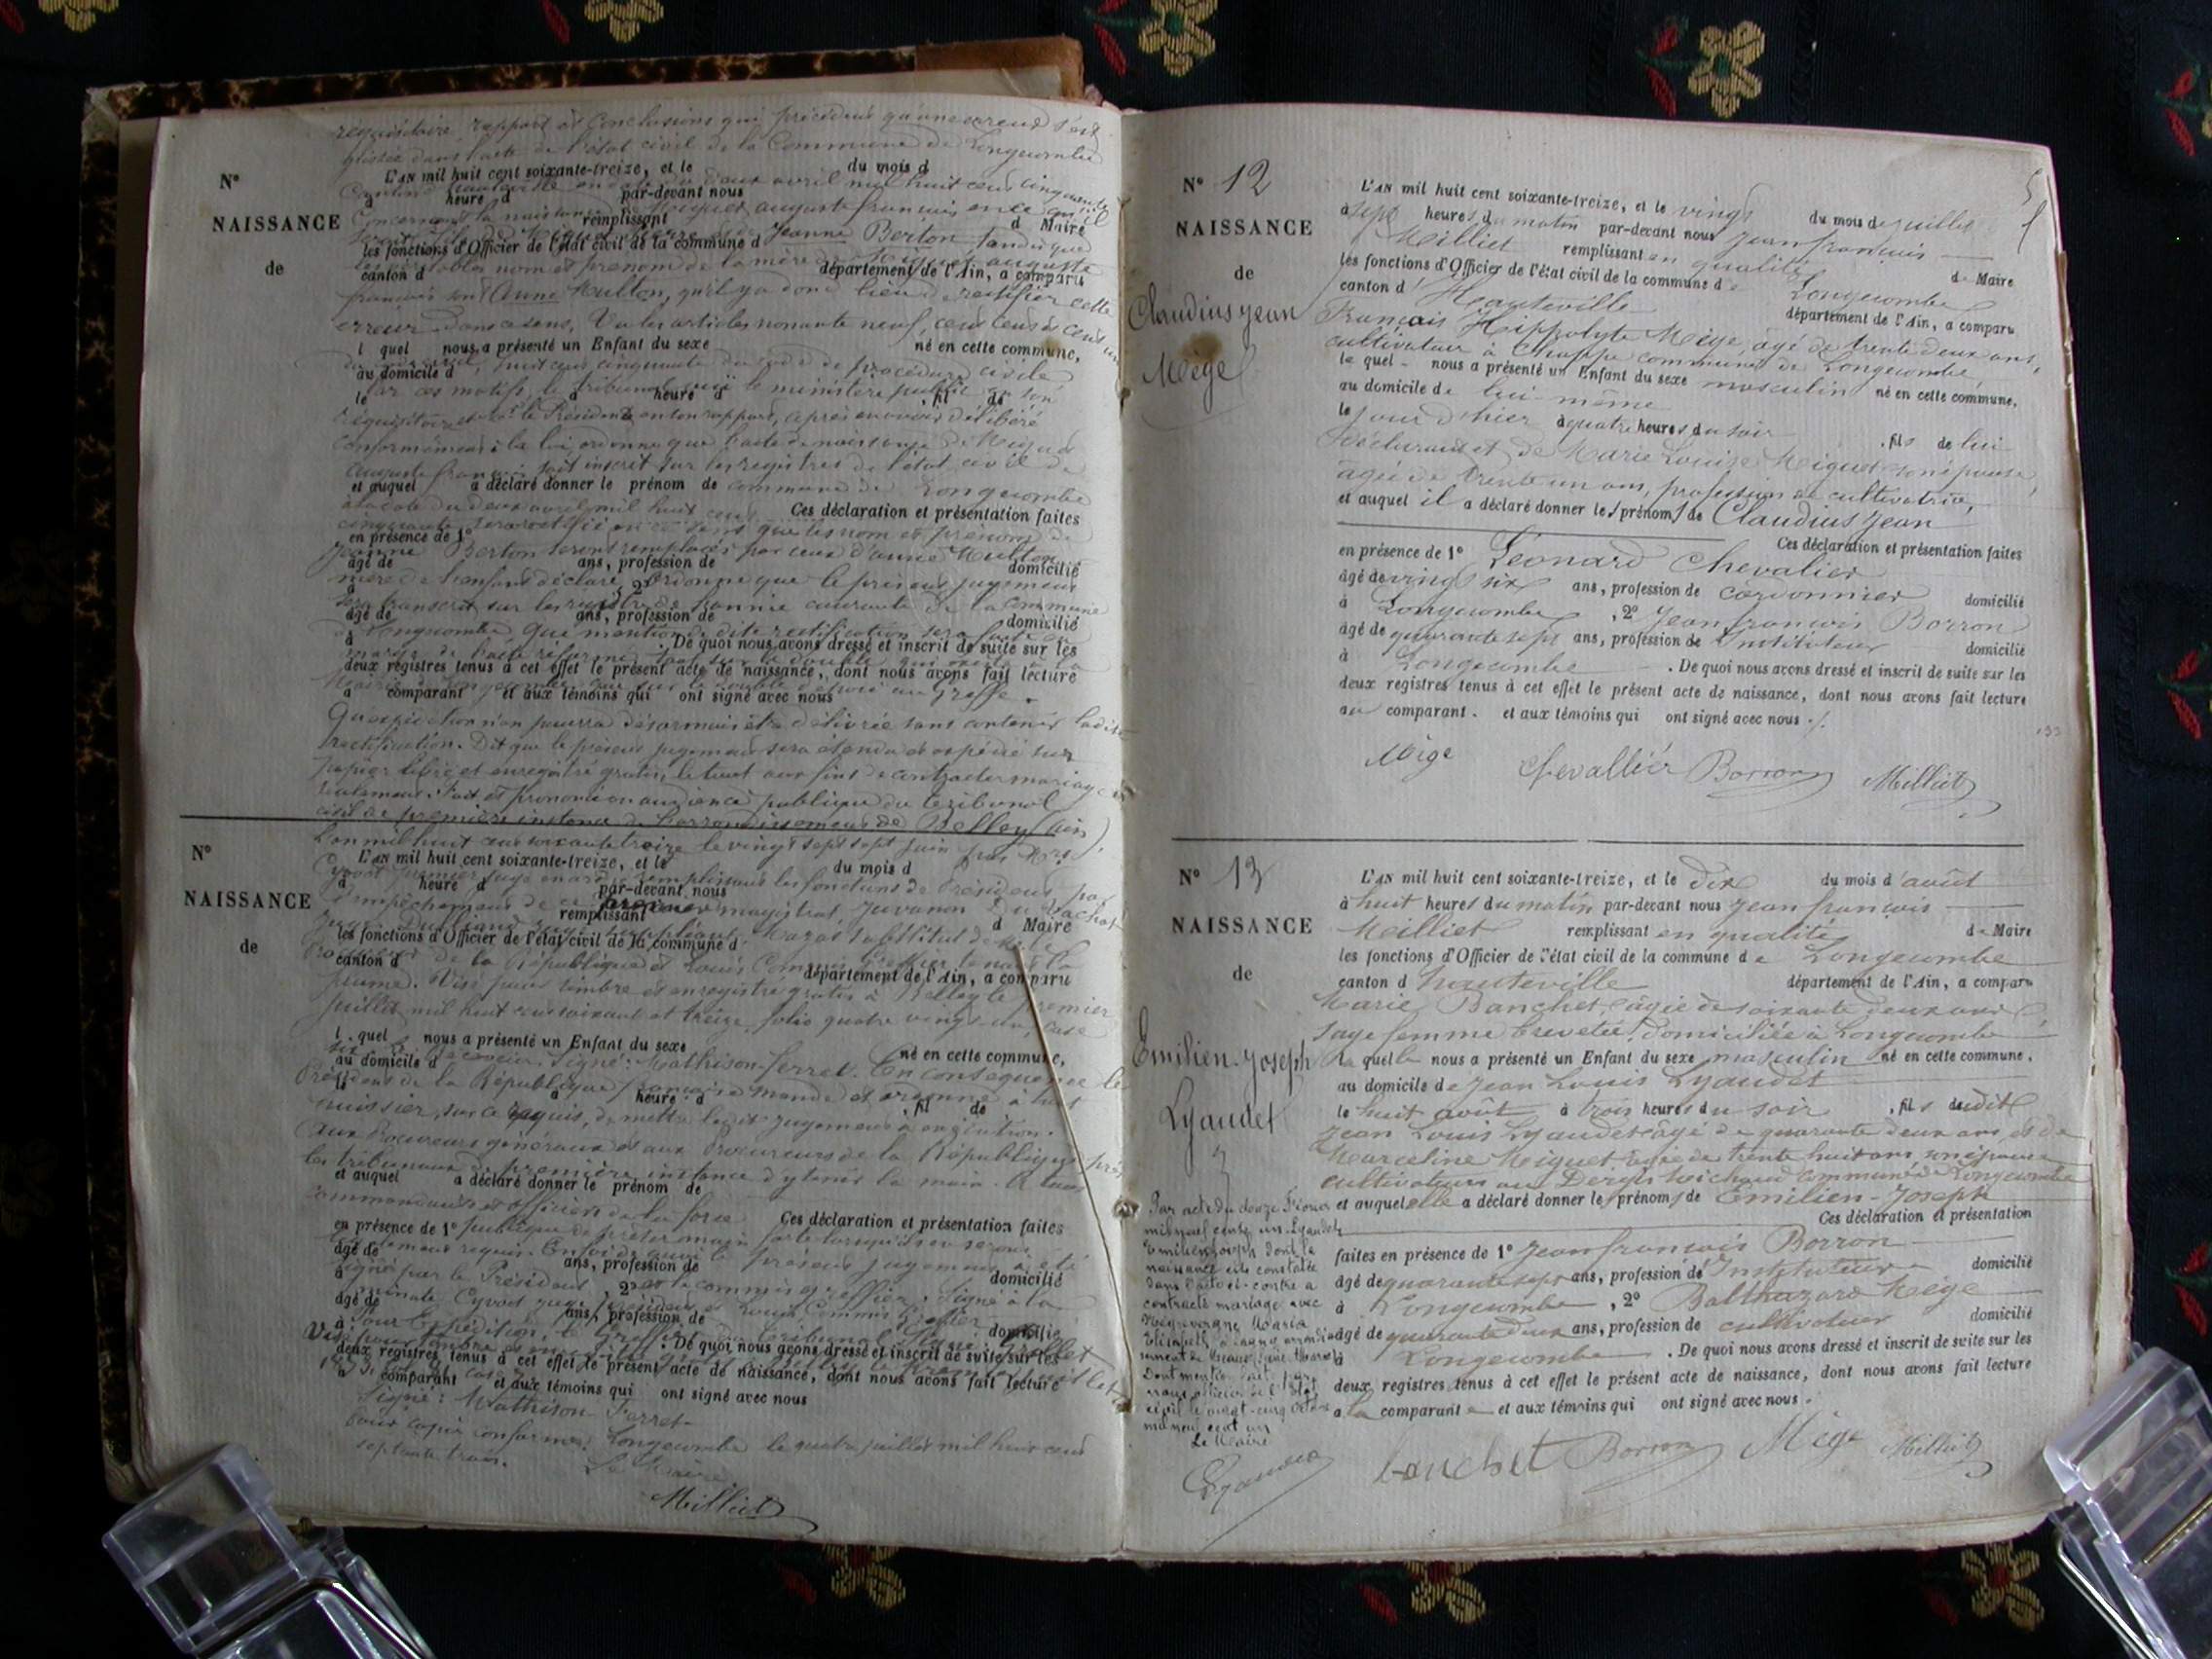 réquisitoire, rapport et conclusions qui précèdent qu'une erreur s'est
glissée dans l'acte de l'état civil de la Commune de Longecombe
N°
L'AN mil huit cent soixante-treize, et le du mois d
avril mil huit cent cinquante
à heure d par-devant nous
concernant la naissance de Miguet auguste françois
NAISSANCE
remplissant d Maire
Jeanne Berton tandis que
les fonctions d'Officier de l'état civil de la commune d
de
les véritables nom et prénom de la mère de Miguet auguste
canton d département de l'Ain, a comparu
françois sont Anne Multon, qu'il y a donc lieu de rectifier cette
erreur dans ce sens, Vu les articles nonante neuf, cent
l quel nous a présenté un Enfant du sexe né en cette commune,
huit cent cinquante du code de procédure civile
au domicile d
Par ces motifs, le tribunal, ouï le ministère public en son
le à heure d , fil de
réquisitoire et Mr le Président en son rapport, après en avoir délibéré
conformément à la loi, ordonne que l'acte de naissance de Miguet
auguste françois soit inscrit sur les registres de l'état civil de
et auquel a déclaré donner le prénom de
commune de Longecombe
à la date du deux avril mil huit cent
Ces déclaration et présentation faites
cinquante sera rectifié en ce sens que les nom et prénom de
en présence de 1°
Jeanne Berton seront remplacés par ceux d'anne Multon
âgé de ans, profession de domicilié
mère de l'enfant déclaré, ordonne que le présent jugement
à , 2°
sera transcrit sur les registres de l'année courante de la commune
âgé de ans, profession de domicilié
de Longecombe que mention de dite rectification sera faite en
à . De quoi nous avons dressé et inscrit de suite sur les
marge de l'acte réformé
deux registres tenus à cet effet le présent acte de naissance, dont nous avons fait lecture
a comparant et aux témoins qui ont signé avec nous
au Greffe.
Qu'expédition n'en pourra désormais être délivrée sans contenir ladite
rectification. Dit que le présent jugement sera étendu et expédié sur
papier libre et enregistré gratis, le tout aux fins de contracter mariage
seulement. Fait et prononcé en audience publique du tribunal
civil de première instance de l'arrondissement de Belley (Ain)
L'an mil huit cent soixante treize le vingt sept juin par Mrs
N°
L'AN mil huit cent soixante-treize, et le du mois d
Cyvoct premier juge remplissant les fonctions de Président par
à heure d par-devant nous
NAISSANCE
empêchement de ce magistrat, Juvanon Du Vachat
remplissant d Maire
Mazas substitut de
les fonctions d'Officier de l'état civil de la commune d
de
Procureur de la République et Louis Commis greffier tenant la
canton d département de l'Ain, a comparu
plume. Visé pour timbre et enregistré gratis à Belley le premier
juillet mil huit cent soixante et treize, folio quatre vingt un, case
l quel nous a présenté un Enfant du sexe né en cette commune,
Signé: Mathison-Ferret. En conséquence le
au domicile d
Président de la République française mande et ordonne à tous
le à heure d , fil de
huissier, sur ce requis, de mettre ledit jugement à exécution.
Aux Procureurs généraux et aux Procureurs de la République près
les tribunaux de première instance d'y tenir la main. A tous
et auquel a déclaré donner le prénom de
commandants et officiers de la force
Ces déclaration et présentation faites
en présence de 1°
publique de prêter main forte lorsqu'ils en seront
légalement requis. En foi de quoi le présent jugement a été
âgé de ans, profession de domicilié
signé par le Président et le commis greffier. Signé à la
à , 2°
minute Cyvoct et Louis Commis Greffier
âgé de ans, profession de domicilié
Pour Expédition, le Greffier du tribunal Signé Grollet
à . De quoi nous avons dressé et inscrit de suite sur les
Visé pour timbre et enregistré
deux registres tenus à cet effet le présent acte de naissance, dont nous avons fait lecture
a comparant et aux témoins qui ont signé avec nous
Signé: Mathison-Ferret
Pour copie conforme: Longecombe le quatre juillet mil huit cent
septante trois.
Le Maire
Milliet
N° 12
L'AN mil huit cent soixante-treize, et le vingt du mois de juillet
à sept heures du matin par-devant nous Jean françois
NAISSANCE
Milliet remplissant en qualité de Maire
les fonctions d'Officier de l'état civil de la commune de Longecombe
de
canton d'Hauteville département de l'Ain, a comparu
Claudius Jean
Mège
François Hippolyte Mège, âgé de trente deux ans,
cultivateur à Chappe commune de Longecombe,
le quel nous a présenté un Enfant du sexe masculin né en cette commune,
au domicile de lui-même
le jour d'hier à quatre heures du soir , fils de lui
déclarant et de Marie Louise Miguet son épouse,
âgée de trente un ans, profession de cultivatrice,
et auquel il a déclaré donner les prénoms de Claudius Jean
Ces déclaration et présentation faites
en présence de 1° Léonard Chevalier
âgé de vingt six ans, profession de cordonnier domicilié
à Longecombe , 2° Jean françois Borron
âgé de quarante sept ans, profession de Instituteur domicilié
à Longecombe . De quoi nous avons dressé et inscrit de suite sur les
deux registres tenus à cet effet le présent acte de naissance, dont nous avons fait lecture
au comparant . et aux témoins qui ont signé avec nous ./.
Mège Chevallier Borron Milliet
N° 13
L'AN mil huit cent soixante-treize, et le dix du mois d'août
à huit heures du matin par-devant nous Jean françois
NAISSANCE
Milliet remplissant en qualité de Maire
les fonctions d'Officier de l'état civil de la commune de Longecombe
de
canton d'hauteville département de l'Ain, a comparu
Marie Banchet, âgée de soixante deux ans
sage femme brevetée, domiciliée à Longecombe
Emilien-Joseph
Lyaudet
la quelle nous a présenté un Enfant du sexe masculin né en cette commune,
au domicile de Jean Louis Lyaudet
le huit août à trois heures du soir , fils dudit
Jean Louis Lyaudet âgé de quarante deux ans et de
Marceline Miguet âgée de trente huit ans, son épouse
cultivateurs au Dergis Michaud commune de Longecombe
et auquel elle a déclaré donner les prénoms de Emilien-Joseph
Ces déclaration et présentation
faites en présence de 1° Jean françois Borron
âgé de quarante sept ans, profession de Instituteur domicilié
à Longecombe , 2° Balthazard Mège
âgé de quarante deux ans, profession de cultivateur domicilié
à Longecombe . De quoi nous avons dressé et inscrit de suite sur les
deux registres tenus à cet effet le présent acte de naissance, dont nous avons fait lecture
a la comparante et aux témoins qui ont signé avec nous .
Banchet Borron Mège Milliet
Par acte du douze Février
mil neuf cent un Lyaudet
Emilien Joseph dont la
naissance est constatée
dans l'acte ci-contre a
contracté mariage avec
Maria
Elisabeth à Lagny arrondis-
sement de Meaux Seine et Marne
Dont mention faite par
nous officier de l'état
civil le vingt-cinq
mil neuf cent un
Le Maire
Lyaudet